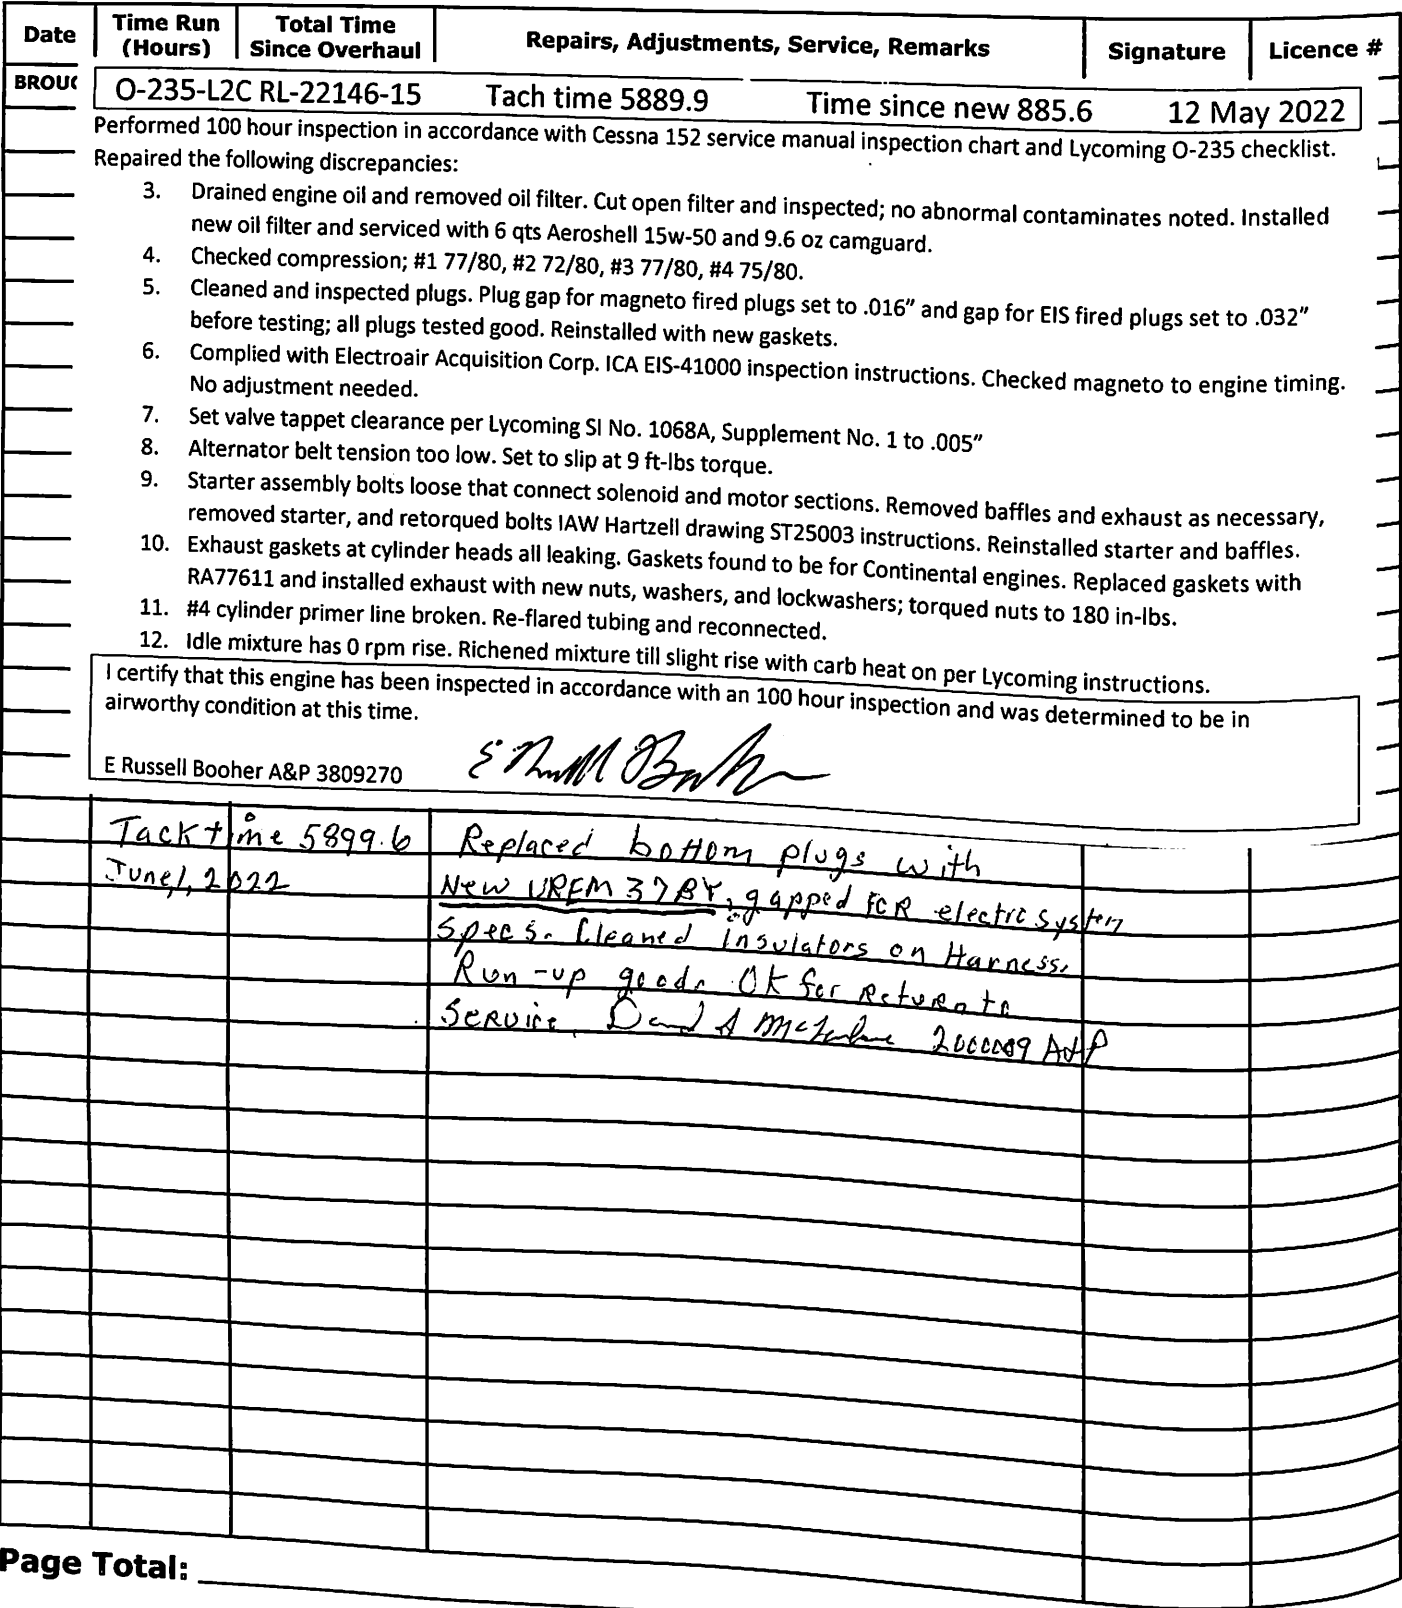 Date Time Run (Hours) Total Time Since Overhaul Repairs, Adjustments, Service, Remarks Signature Licence #
BROUG
O-235-L2C RL-22146-15 Tach time 5889.9 Time since new 885.6 12 May 2022
Performed 100 hour inspection in accordance with Cessna 152 service manual inspection chart and Lycoming O-235 checklist.
Repaired the following discrepancies:
3. Drained engine oil and removed oil filter. Cut open filter and inspected; no abnormal contaminates noted. Installed
new oil filter and serviced with 6 qts Aeroshell 15w-50 and 9.6 oz camguard.
4. Checked compression; #1 77/80, #2 72/80, #3 77/80, #4 75/80.
5. Cleaned and inspected plugs. Plug gap for magneto fired plugs set to .016” and gap for EIS fired plugs set to .032”
before testing; all plugs tested good. Reinstalled with new gaskets.
6. Complied with Electroair Acquisition Corp. ICA EIS-41000 inspection instructions. Checked magneto to engine timing.
No adjustment needed.
7. Set valve tappet clearance per Lycoming SI No. 1068A, Supplement No. 1 to .005”
8. Alternator belt tension too low. Set to slip at 9 ft-lbs torque.
9. Starter assembly bolts loose that connect solenoid and motor sections. Removed baffles and exhaust as necessary,
removed starter, and retorqued bolts IAW Hartzell drawing ST25003 instructions. Reinstalled starter and baffles.
10. Exhaust gaskets at cylinder heads all leaking. Gaskets found to be for Continental engines. Replaced gaskets with
RA77611 and installed exhaust with new nuts, washers, and lockwashers; torqued nuts to 180 in-lbs.
11. #4 cylinder primer line broken. Re-flared tubing and reconnected.
12. Idle mixture has 0 rpm rise. Richened mixture till slight rise with carb heat on per Lycoming instructions.
I certify that this engine has been inspected in accordance with an 100 hour inspection and was determined to be in
airworthy condition at this time.
E Russell Booher A&P 3809270
Tack time 5899.6 Replaced bottom plugs with
June, 1, 2022 New UREM 37BY, gapped FOR electric system
Specs. Cleaned Insulators on Harness.
Run-up good. OK for Return to
Service. A&P
Page Total: